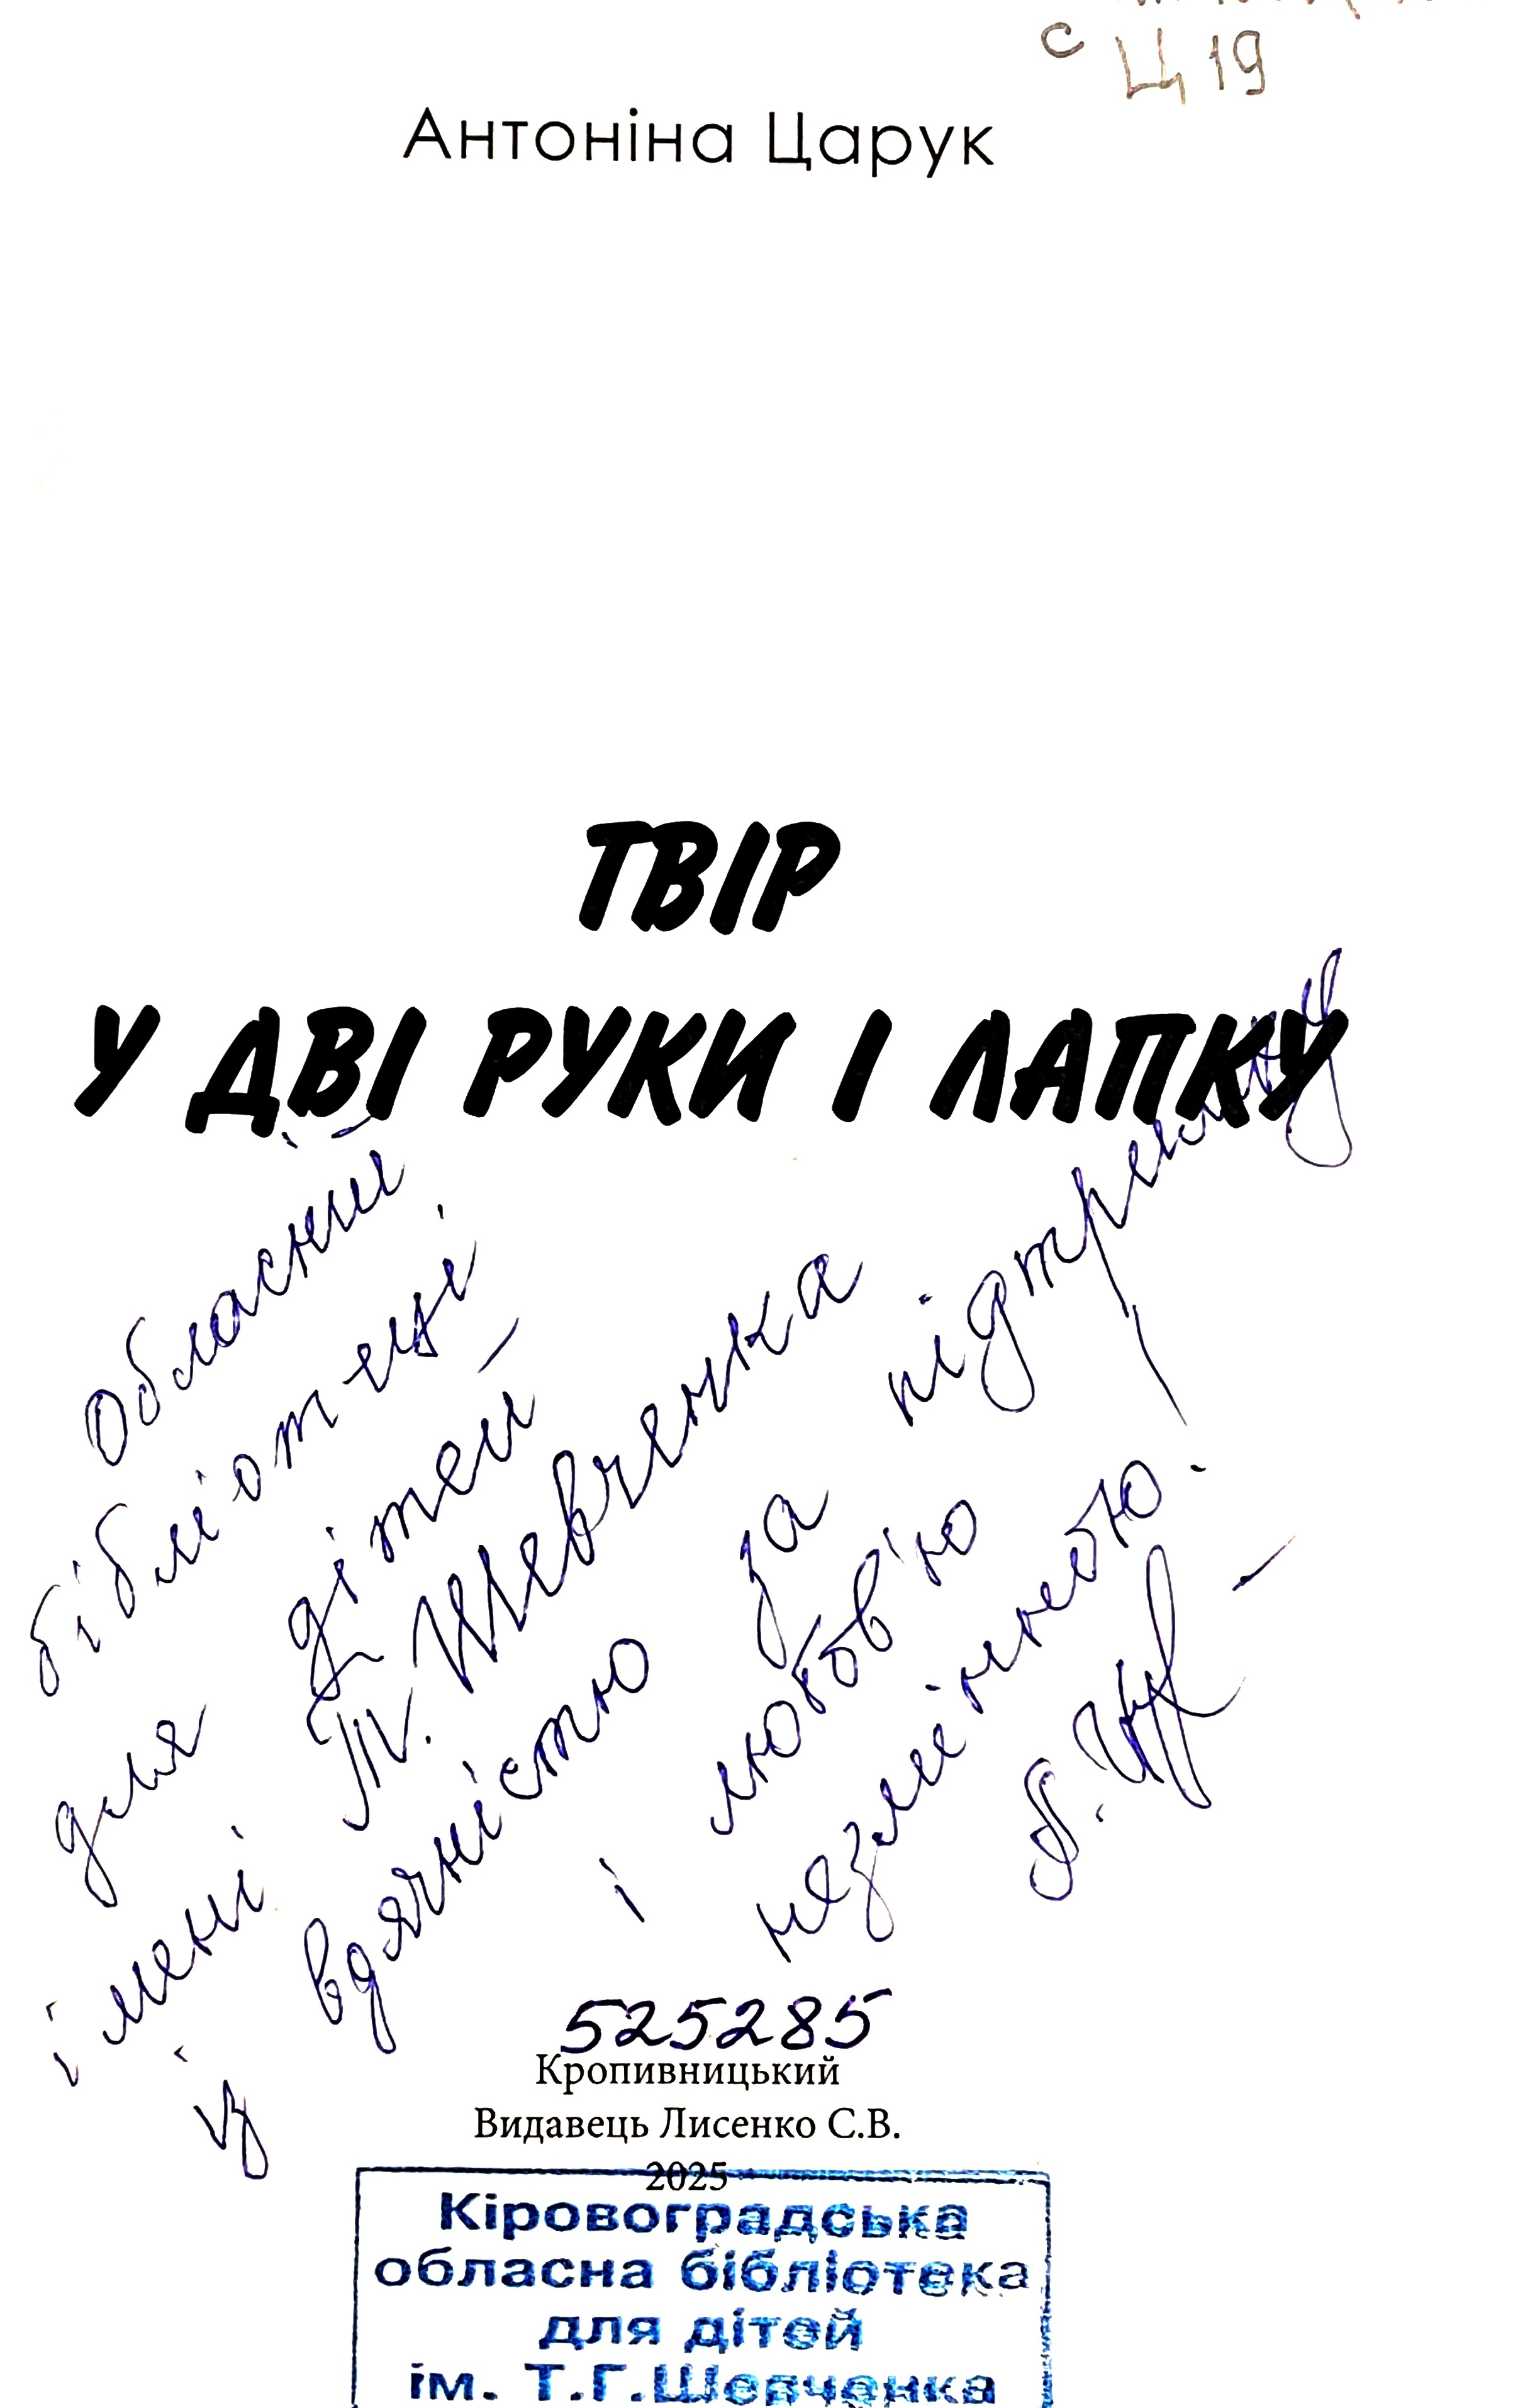 с Ц 19
Антоніна Царук
ТВІР
У ДВІ РУКИ І ЛАПКУ
Обласній
бібліотеці
для дітей
імені Т. Шевченка
із вдячністю за підтримку
і любов'ю
незмінною.
525285
Кропивницький
Видавець Лисенко С.В.
2025
Кіровоградська
обласна бібліотека
для дітей
ім. Т.Г.Шевченка